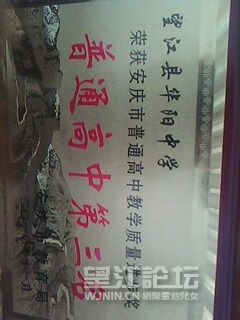 望江县华阳中学
荣获安庆市普通高中教学质量进步奖
普通高中第三名
教育局
望江論坛
WONIN.CN 網聚雷池兒女